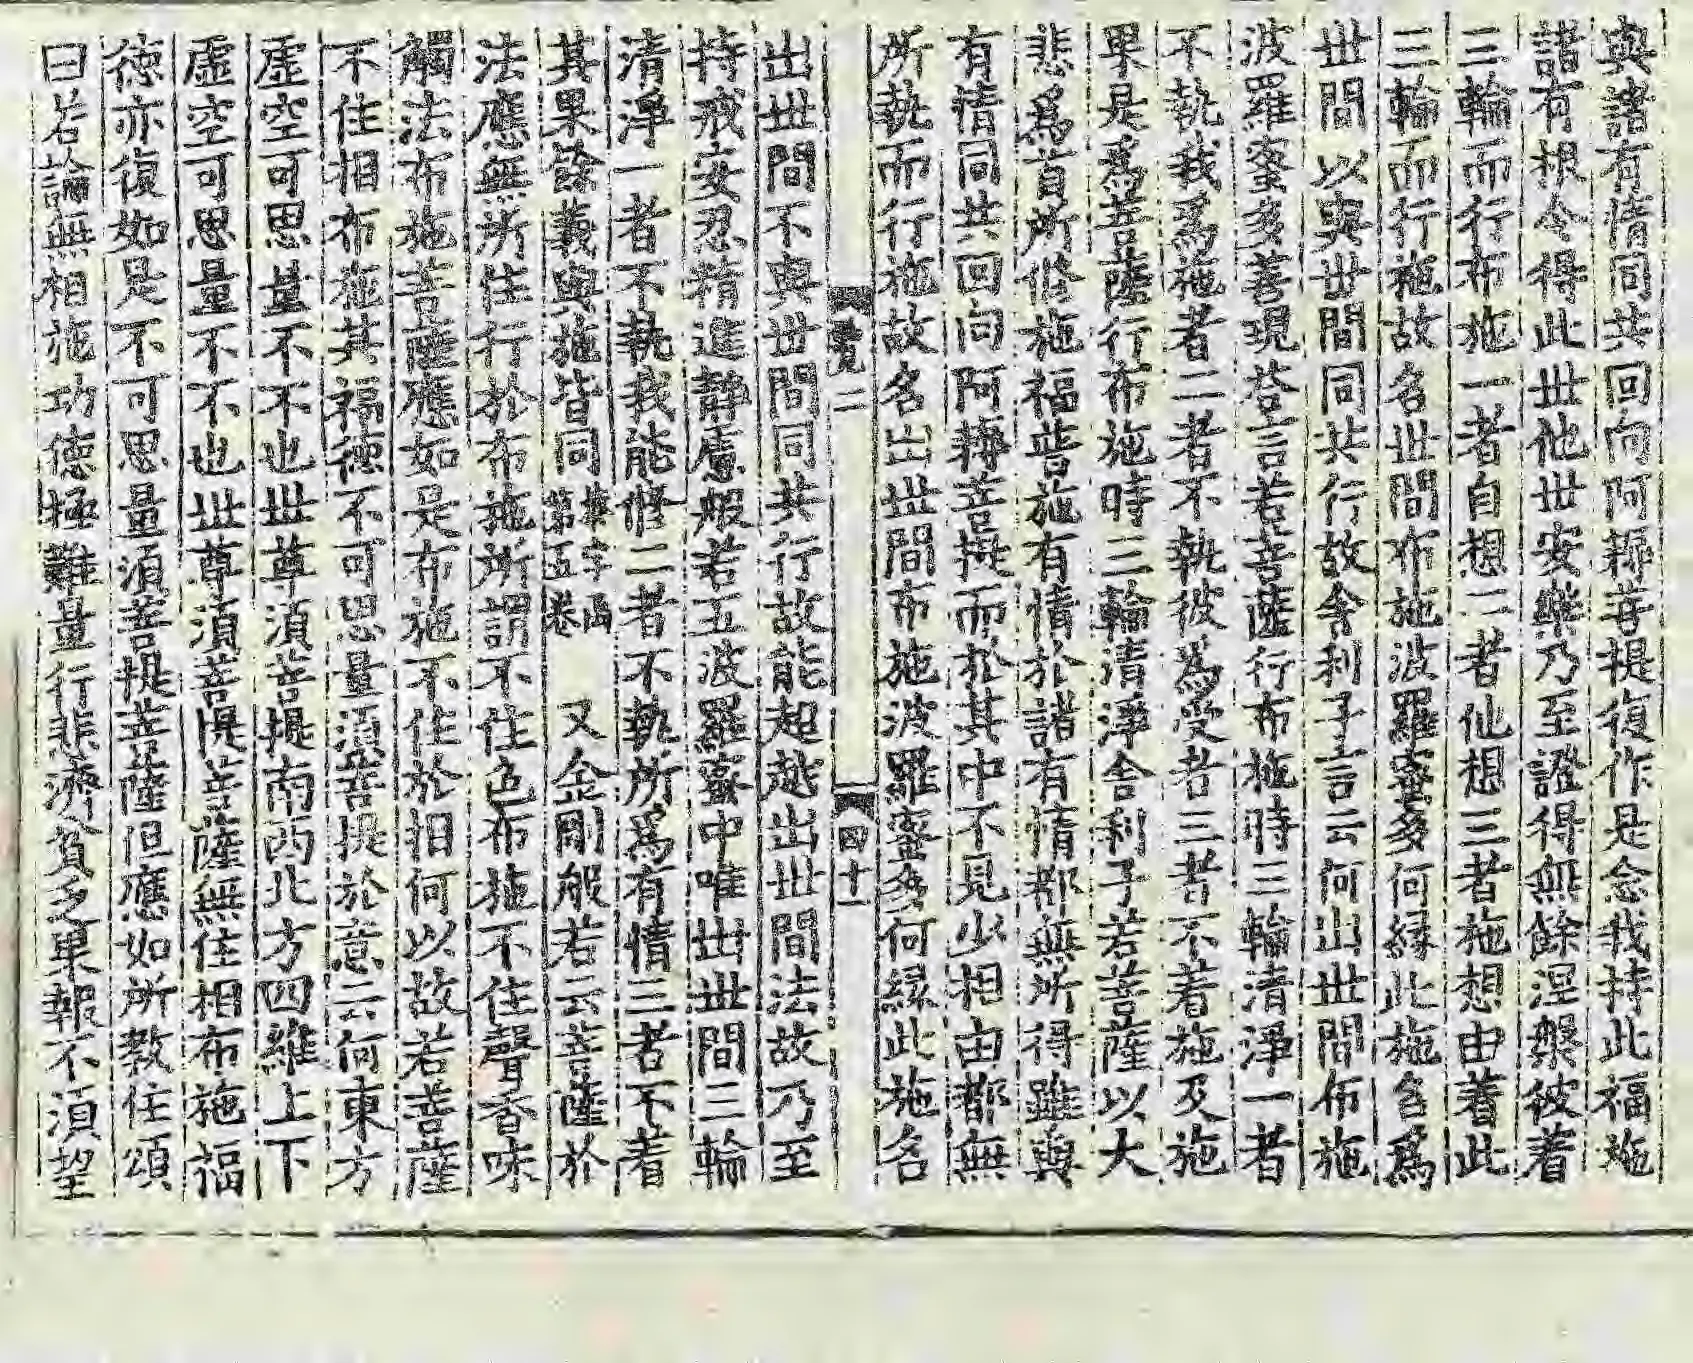 與諸有情同共回向阿耨菩提復作是念我持此福施
諸有根令得此世他世安樂乃至證得無餘涅槃彼着
三輪而行布施一者自想二者他想三者施想由着此
三輪而行施故名世間布施波羅蜜多何緣此施名爲
世間以與世間同共行故舍利子言云何出世間布施
波羅蜜多善現答言若菩薩行布施時三輪清淨一者
不執我爲施者二者不執彼爲受者三者不着施及施
果是爲菩薩行布施時三輪清淨舍利子若菩薩以大
悲爲首所修施福普施有情於諸有情都無所得雖與
有情同共回向阿耨菩提而於其中不見少相由都無
所執而行施故名出世間布施波羅蜜多何緣此施名
二
四十一
出世間不與世間同共行故能超越出世間法故乃至
持戒安忍精進靜慮般若五波羅蜜中唯出世間三輪
清淨一者不執我能修二者不執所爲有情三者不着
其果餘義與施皆同 第五卷 又金剛般若云菩薩於
法應無所住行於布施所謂不住色布施不住聲香味
觸法布施菩薩應如是布施不住於相何以故若菩薩
不住相布施其福德不可思量須菩提於意云何東方
虛空可思量不不也世尊須菩提南西北方四維上下
虛空可思量不不也世尊須菩提菩薩無住相布施福
德亦復如是不可思量須菩提菩薩但應如所教住頌
曰若論無相施功德極難量行悲濟貧乏果報不須望